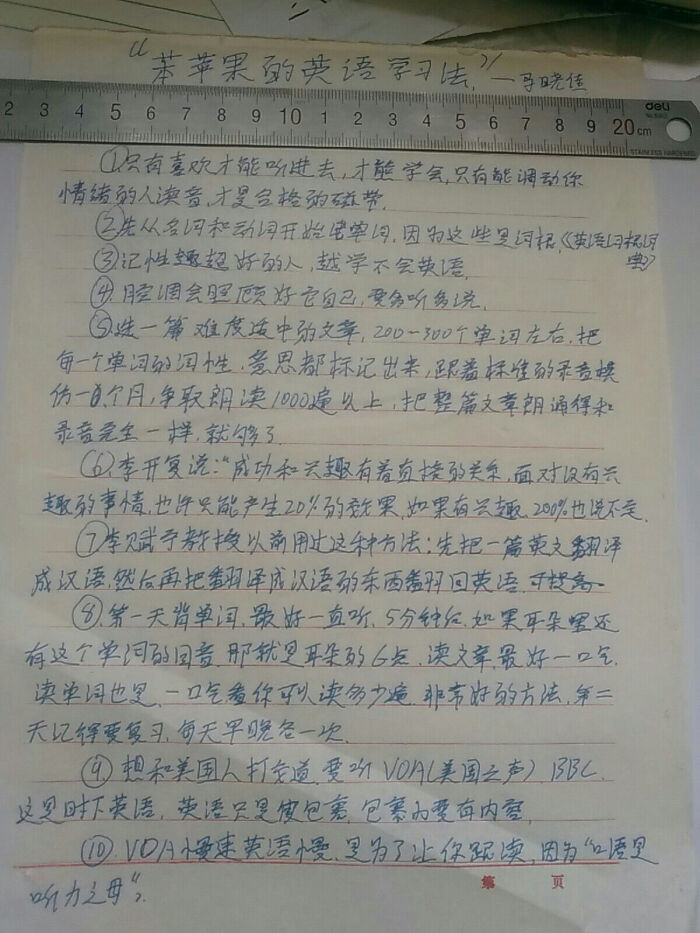 “笨苹果的英语学习法”—马晓佳
2 3 4 5 6 7 8 9 10 1 2 3 4 5 6 7 8 9 20 cm
deli
STAINLESS HARDENED
①只有喜欢才能听进去,才能学会,只有能调动你
情绪的人读音,才是合格的磁带.
②先从名词和动词开始背单词,因为这些是词根,《英语词根词
典》
③记性越超好的人,越学不会英语.
④腔调会照顾好它自己,要多听多说.
⑤选一篇难度适中的文章,200-300个单词左右,把
每一个单词的词性,意思都标记出来,跟着标准的录音模
仿一个月,争取朗读1000遍以上,把整篇文章朗诵得和
录音完全一样,就够了
⑥李开复说:“成功和兴趣有着直接的关系,面对没有兴
趣的事情,也许只能产生20%的效果,如果有兴趣,200%也说不定.
⑦李赋宁教授以前用过这种方法:先把一篇英文翻译
成汉语,然后再把翻译成汉语的东西翻回英语.可提高
⑧第一天背单词,最好一直听,5分钟后,如果耳朵里还
有这个单词的回音,那就是耳朵的G点,读文章,最好一口气,
读单词也是,一口气看你可以读多少遍,非常好的方法,第二
天记得要复习,每天早晚各一次.
⑨想和美国人打交道,要听VOA(美国之声)BBC.
这是时下英语,英语只是做包裹,包裹内要有内容.
⑩.VOA慢速英语慢,是为了让你跟读,因为“口语是
听力之母”.
第 页